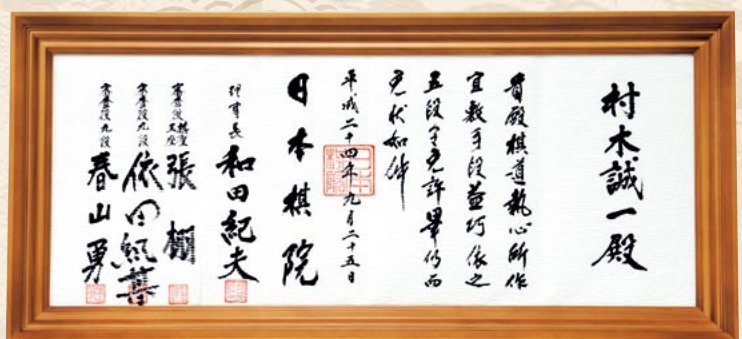 村木誠一殿
貴殿棋道執心所作
宜敷手段益巧依之
五段令免許畢仍而
免状如件
平成二十四年九月二十五日
日本棋院
理事長 和田紀夫
審査役 棋聖 王座 張栩
審査役九段 依田紀基
審査役九段 春山勇